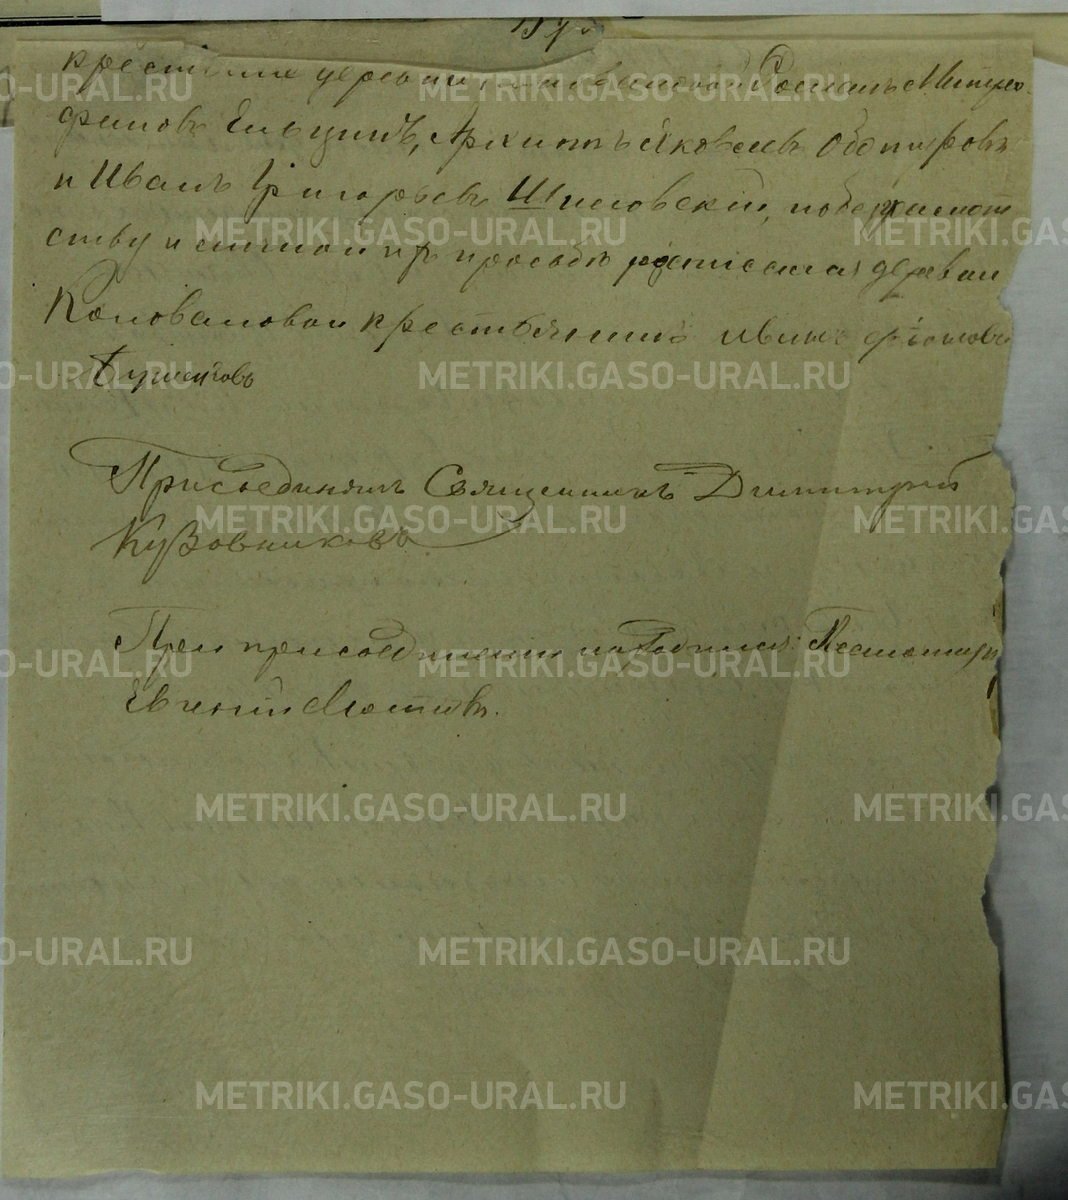 крестьяне деревни Романъ Митро
фановъ Ельцинъ, Архипъ Яковлевъ
и Иванъ Григорьевъ Шиловскій, по безграмот
ству и личной ихъ прозьбѣ росписался деревни
Коноваловой крестьянинъ Иванъ
Присоединялъ Священникъ Димитрій
Кузовниковъ
При присоединеніи находился: Псаломщикъ
Евгеній
METRIKI.GASO-URAL.RU